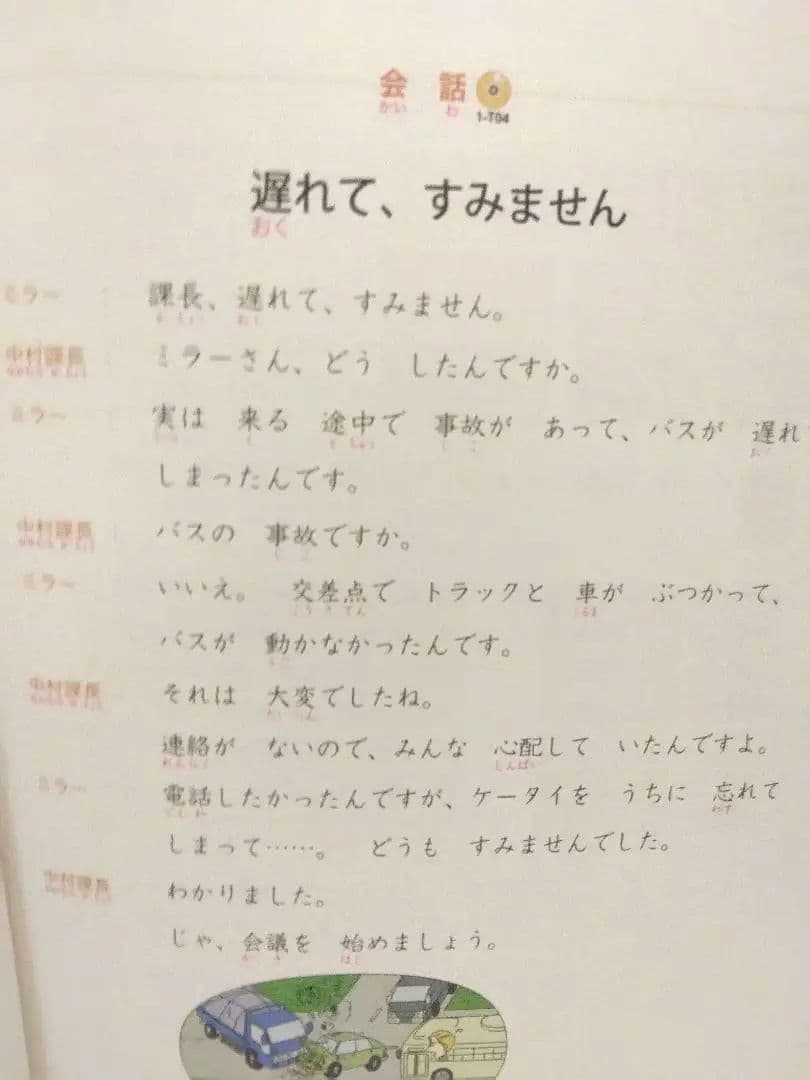 会話
かい わ
1-T04
遅れて、すみません
おく
ミラー : 課長、遅れて、すみません。
中村課長 : ミラーさん、どう したんですか。
ミラー : 実は 来る 途中で 事故が あって、バスが 遅れて
しまったんです。
中村課長 : バスの 事故ですか。
ミラー : いいえ。 交差点で トラックと 車が ぶつかって、
バスが 動かなかったんです。
中村課長 : それは 大変でしたね。
連絡が ないので、みんな 心配して いたんですよ。
ミラー : 電話したかったんですが、ケータイを うちに 忘れて
しまって……。 どうも すみませんでした。
中村課長 : わかりました。
じゃ、会議を 始めましょう。